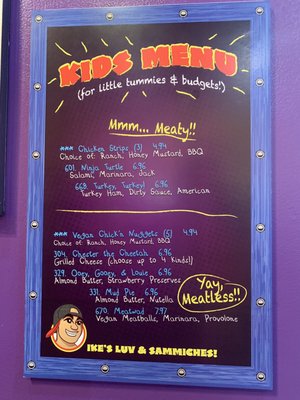 KIDS MENU
(for little tummies & budgets!)
Mmm... Meaty!!
*** Chicken Strips (3) 4.94
Choice of: Ranch, Honey Mustard, BBQ
601. Ninja Turtle 6.96
Salami, Marinara, Jack
668. Turkey, Turkey! 6.96
Turkey Ham, Dirty Sauce, American
*** Vegan Chick'n Nuggets (5) 4.94
Choice of: Ranch, Honey Mustard, BBQ
304. Chester the Cheetah 6.96
Grilled Cheese (choose up to 4 Kinds!)
329. Ooey, Gooey, & Louie 6.96
Almond Butter, Strawberry Preserves
331. Mud Pie 6.96
Almond Butter, Nutella
670. Meatwad 7.97
Vegan Meatballs, Marinara, Provolone
Yay,
Meatless!!
IKE'S LUV & SAMMICHES!